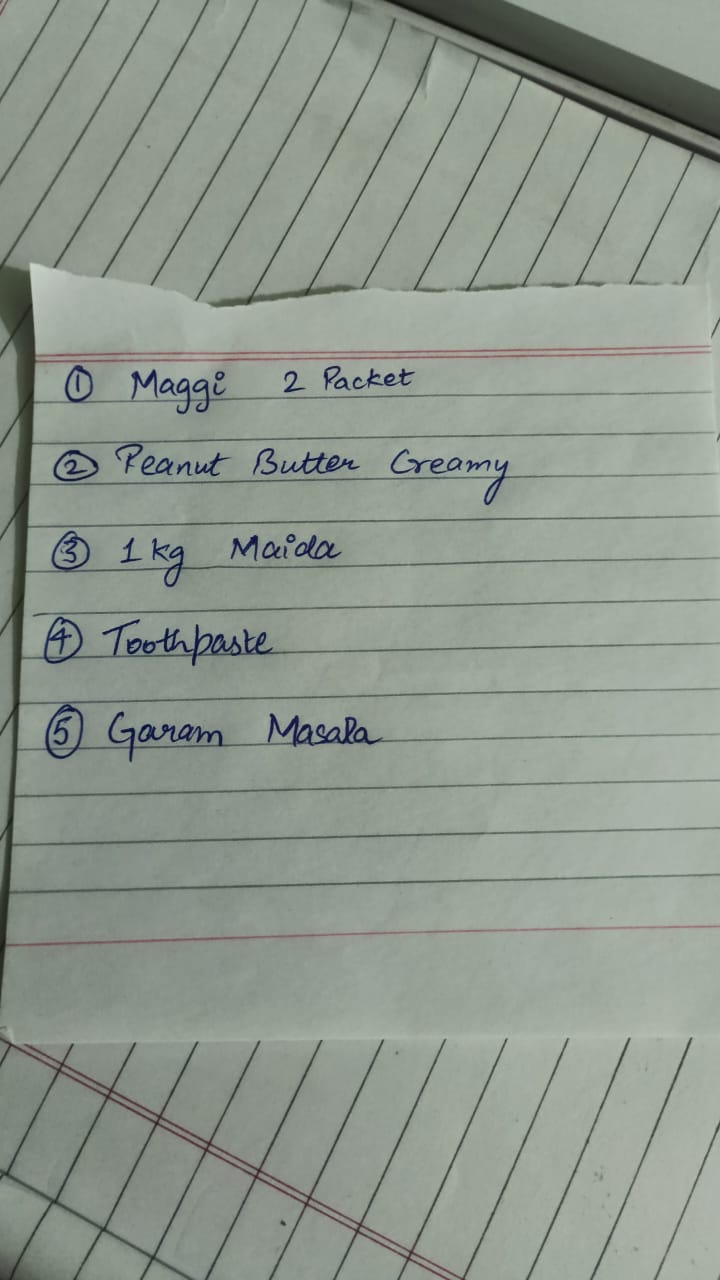 ① Maggi 2 Packet
② Peanut Butter Creamy
③ 1 kg Maida
④ Toothpaste
⑤ Garam Masala